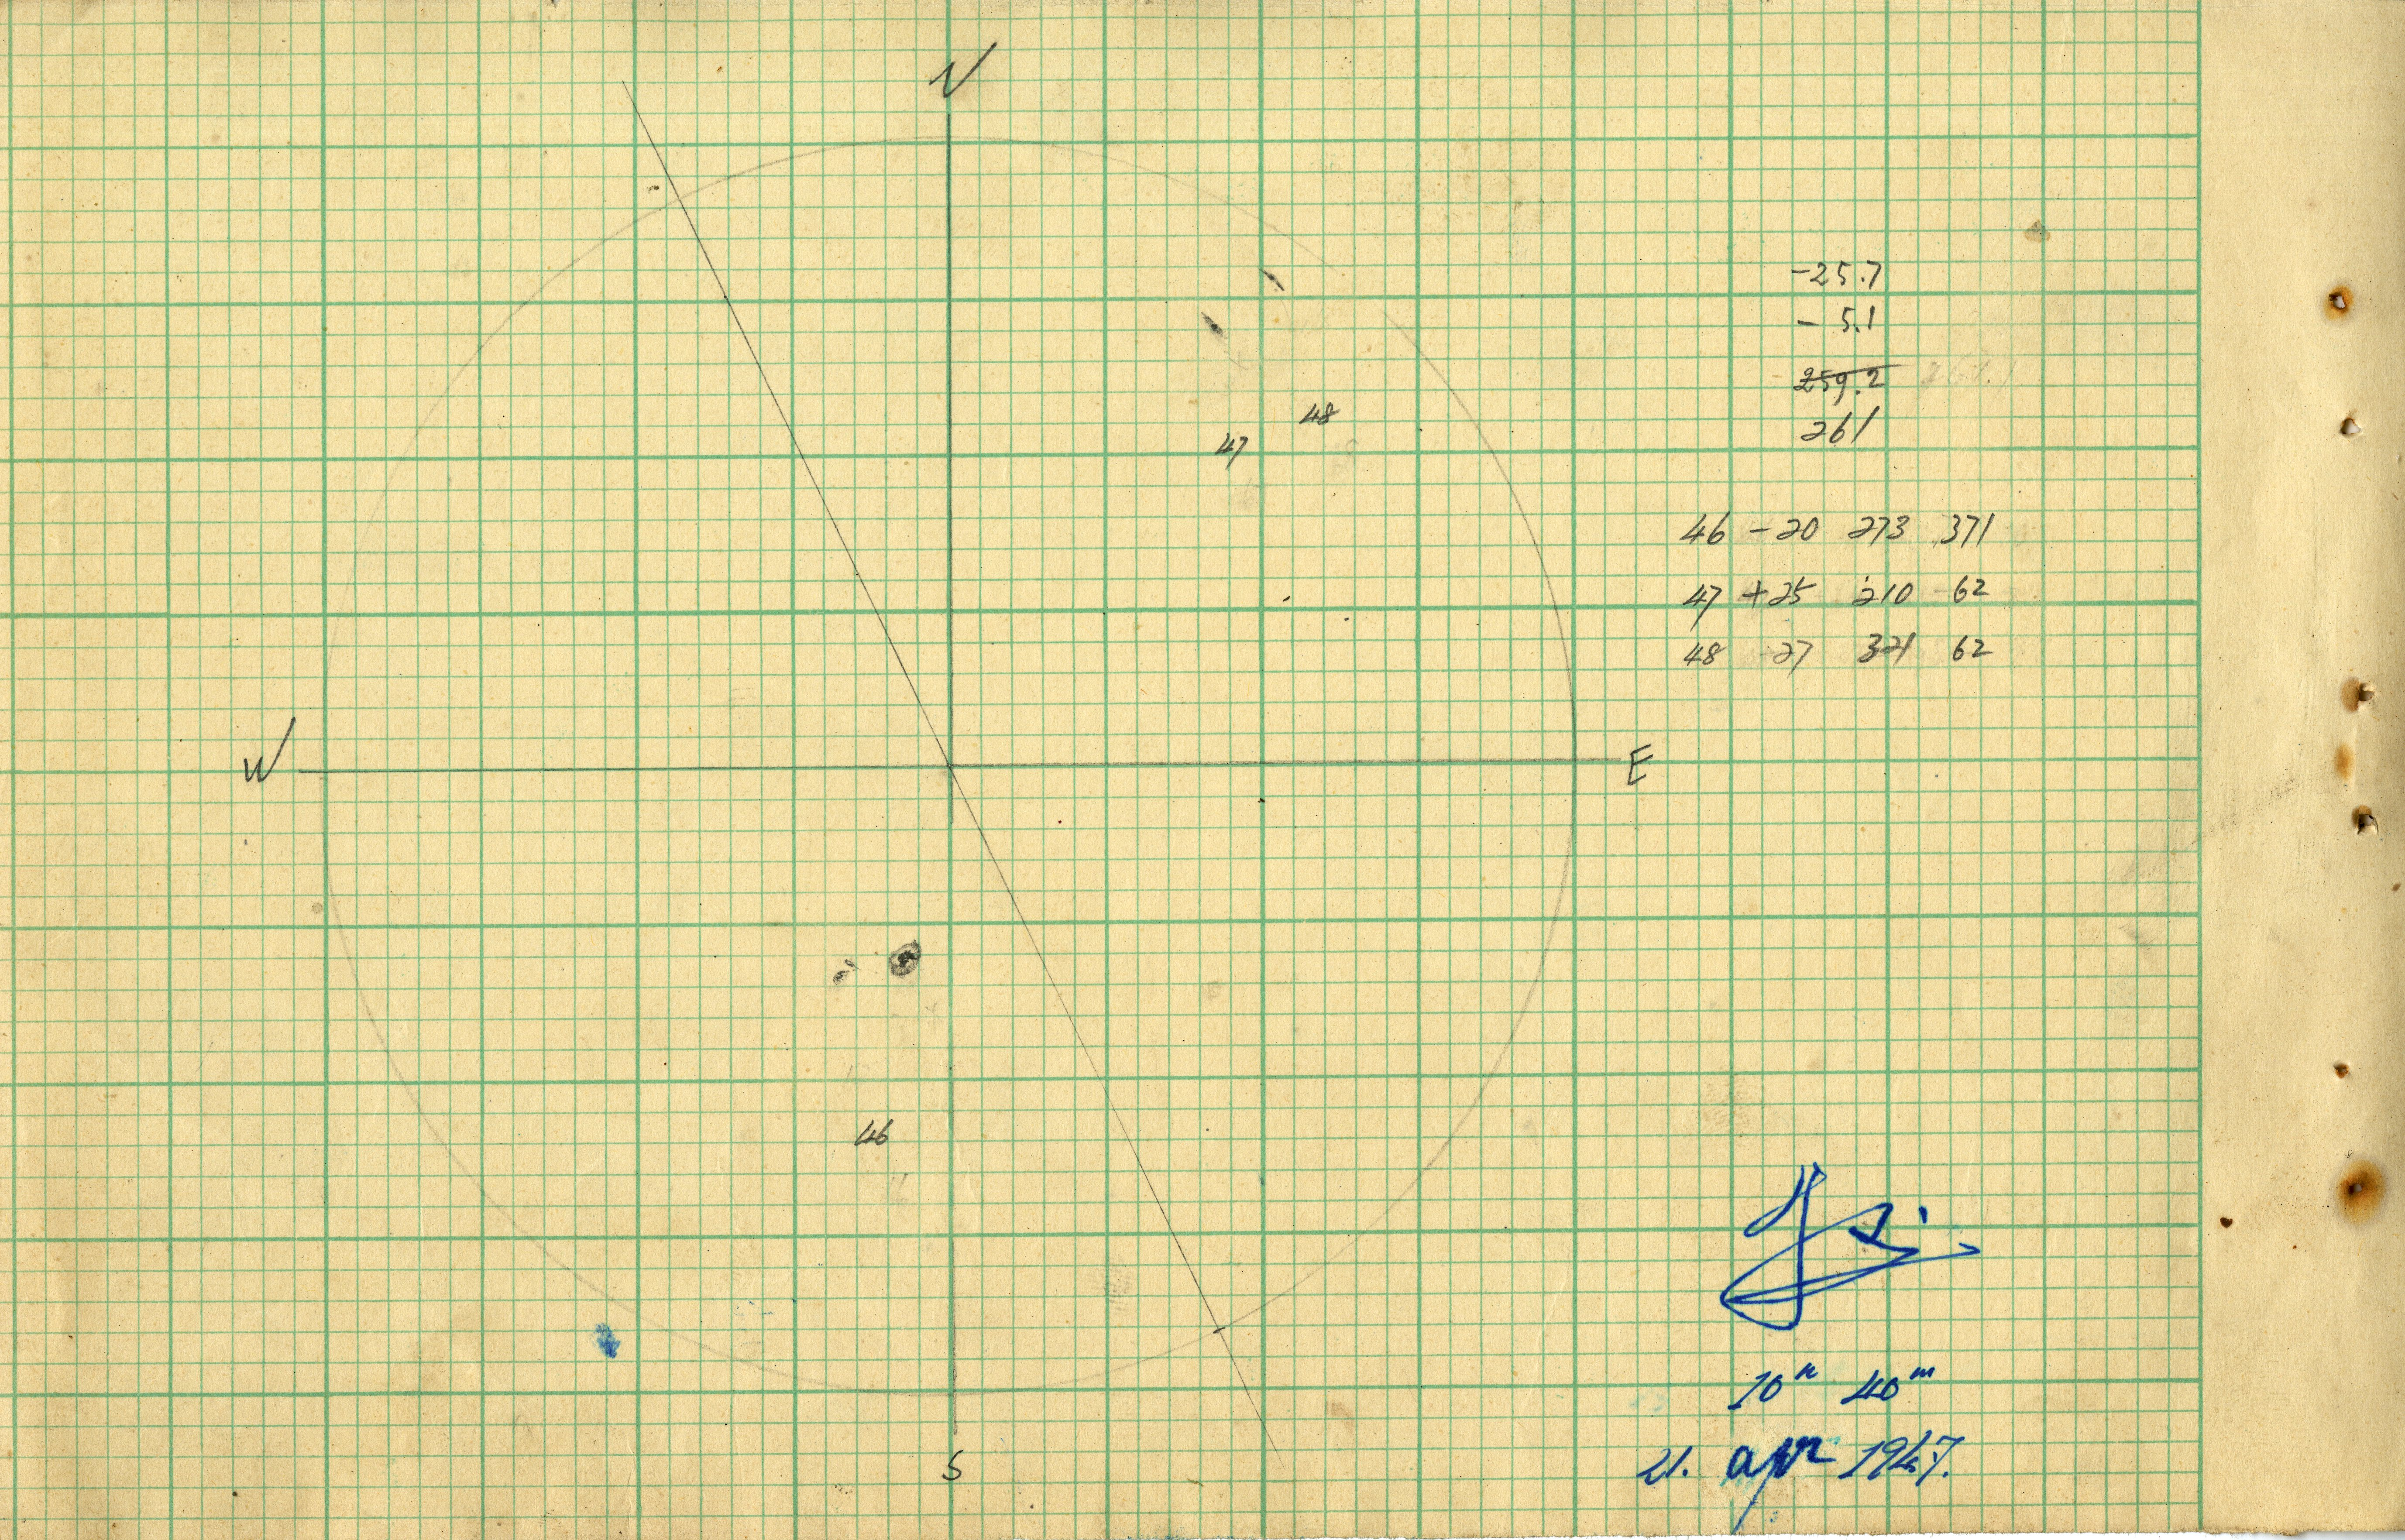 N
48
47
W
E
46
S
-25.7
- 5.1
259.2
261
46 -20 273 371
47 +25 210 62
48 -27 321 62
10h 40m
21. apr 1947.